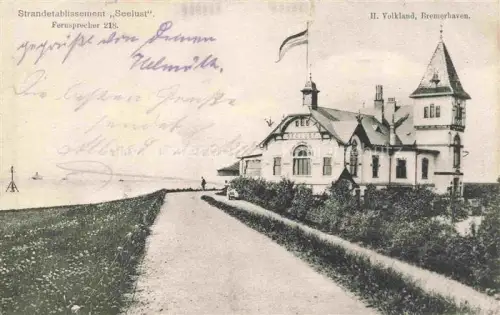 Strandetablissement „Seelust“.
Fernsprecher 218.
H. Volkland, Bremerhaven.
gegrüßt von Deinem
Helmuth.
Die besten Grüße
sendet